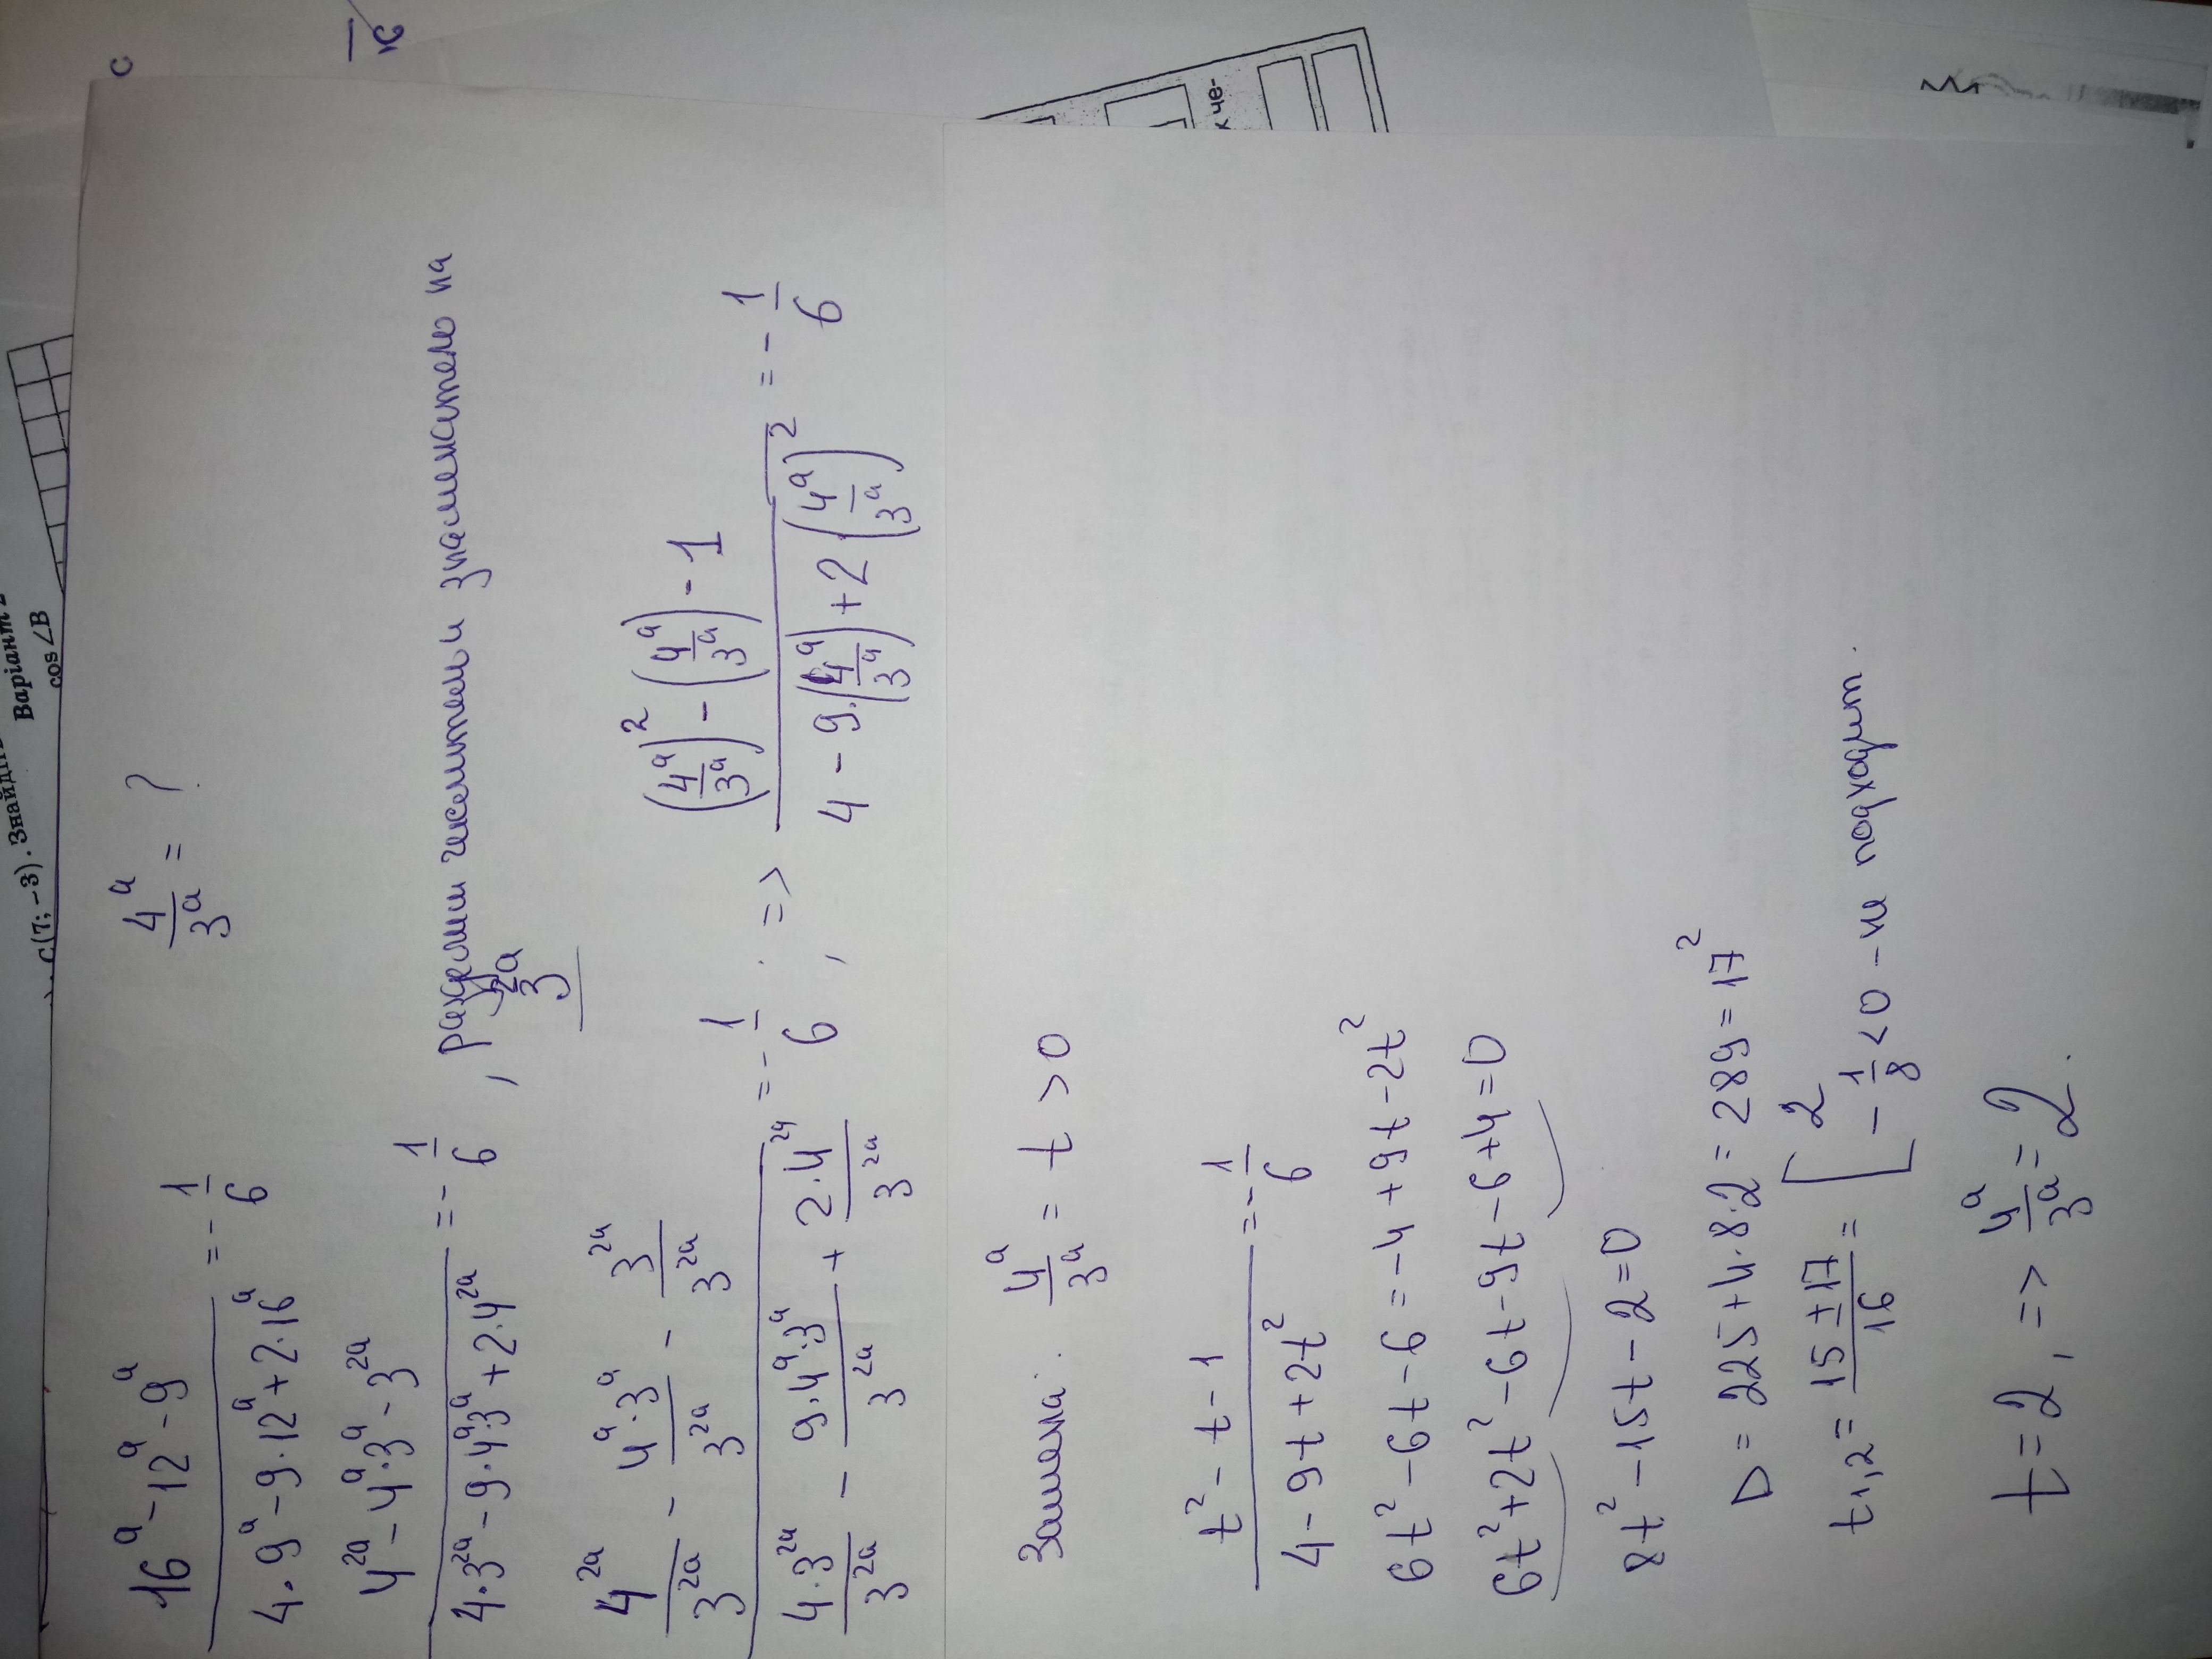 с(7; -3). Знайдіть
Варіант 2
cos ∠B
к че-
c
16^a - 12^a - 9^a / 4·9^a - 9·12^a + 2·16^a = - 1/6    4^a / 3^a = ?
4^2a - 4^a·3^a - 3^2a / 4·3^2a - 9·4^a·3^a + 2·4^2a = - 1/6 , разделим числитель и знаменатель на
3^2a
4^2a / 3^2a - 4^a·3^a / 3^2a - 3^2a / 3^2a / 4·3^2a / 3^2a - 9·4^a·3^a / 3^2a + 2·4^2a / 3^2a = - 1/6 , => (4^a / 3^a)^2 - (4^a / 3^a) - 1 / 4 - 9·(4^a / 3^a) + 2(4^a / 3^a)^2 = - 1/6
Замена: 4^a / 3^a = t > 0
t^2 - t - 1 / 4 - 9t + 2t^2 = - 1/6
6t^2 - 6t - 6 = -4 + 9t - 2t^2
6t^2 + 2t^2 - 6t - 9t - 6 + 4 = 0
8t^2 - 15t - 2 = 0
D = 225 + 4·8·2 = 289 = 17^2
t1,2 = 15 ± 17 / 16 = [ 2
- 1/8 < 0 - не подходит.
t = 2, => 4^a / 3^a = 2.